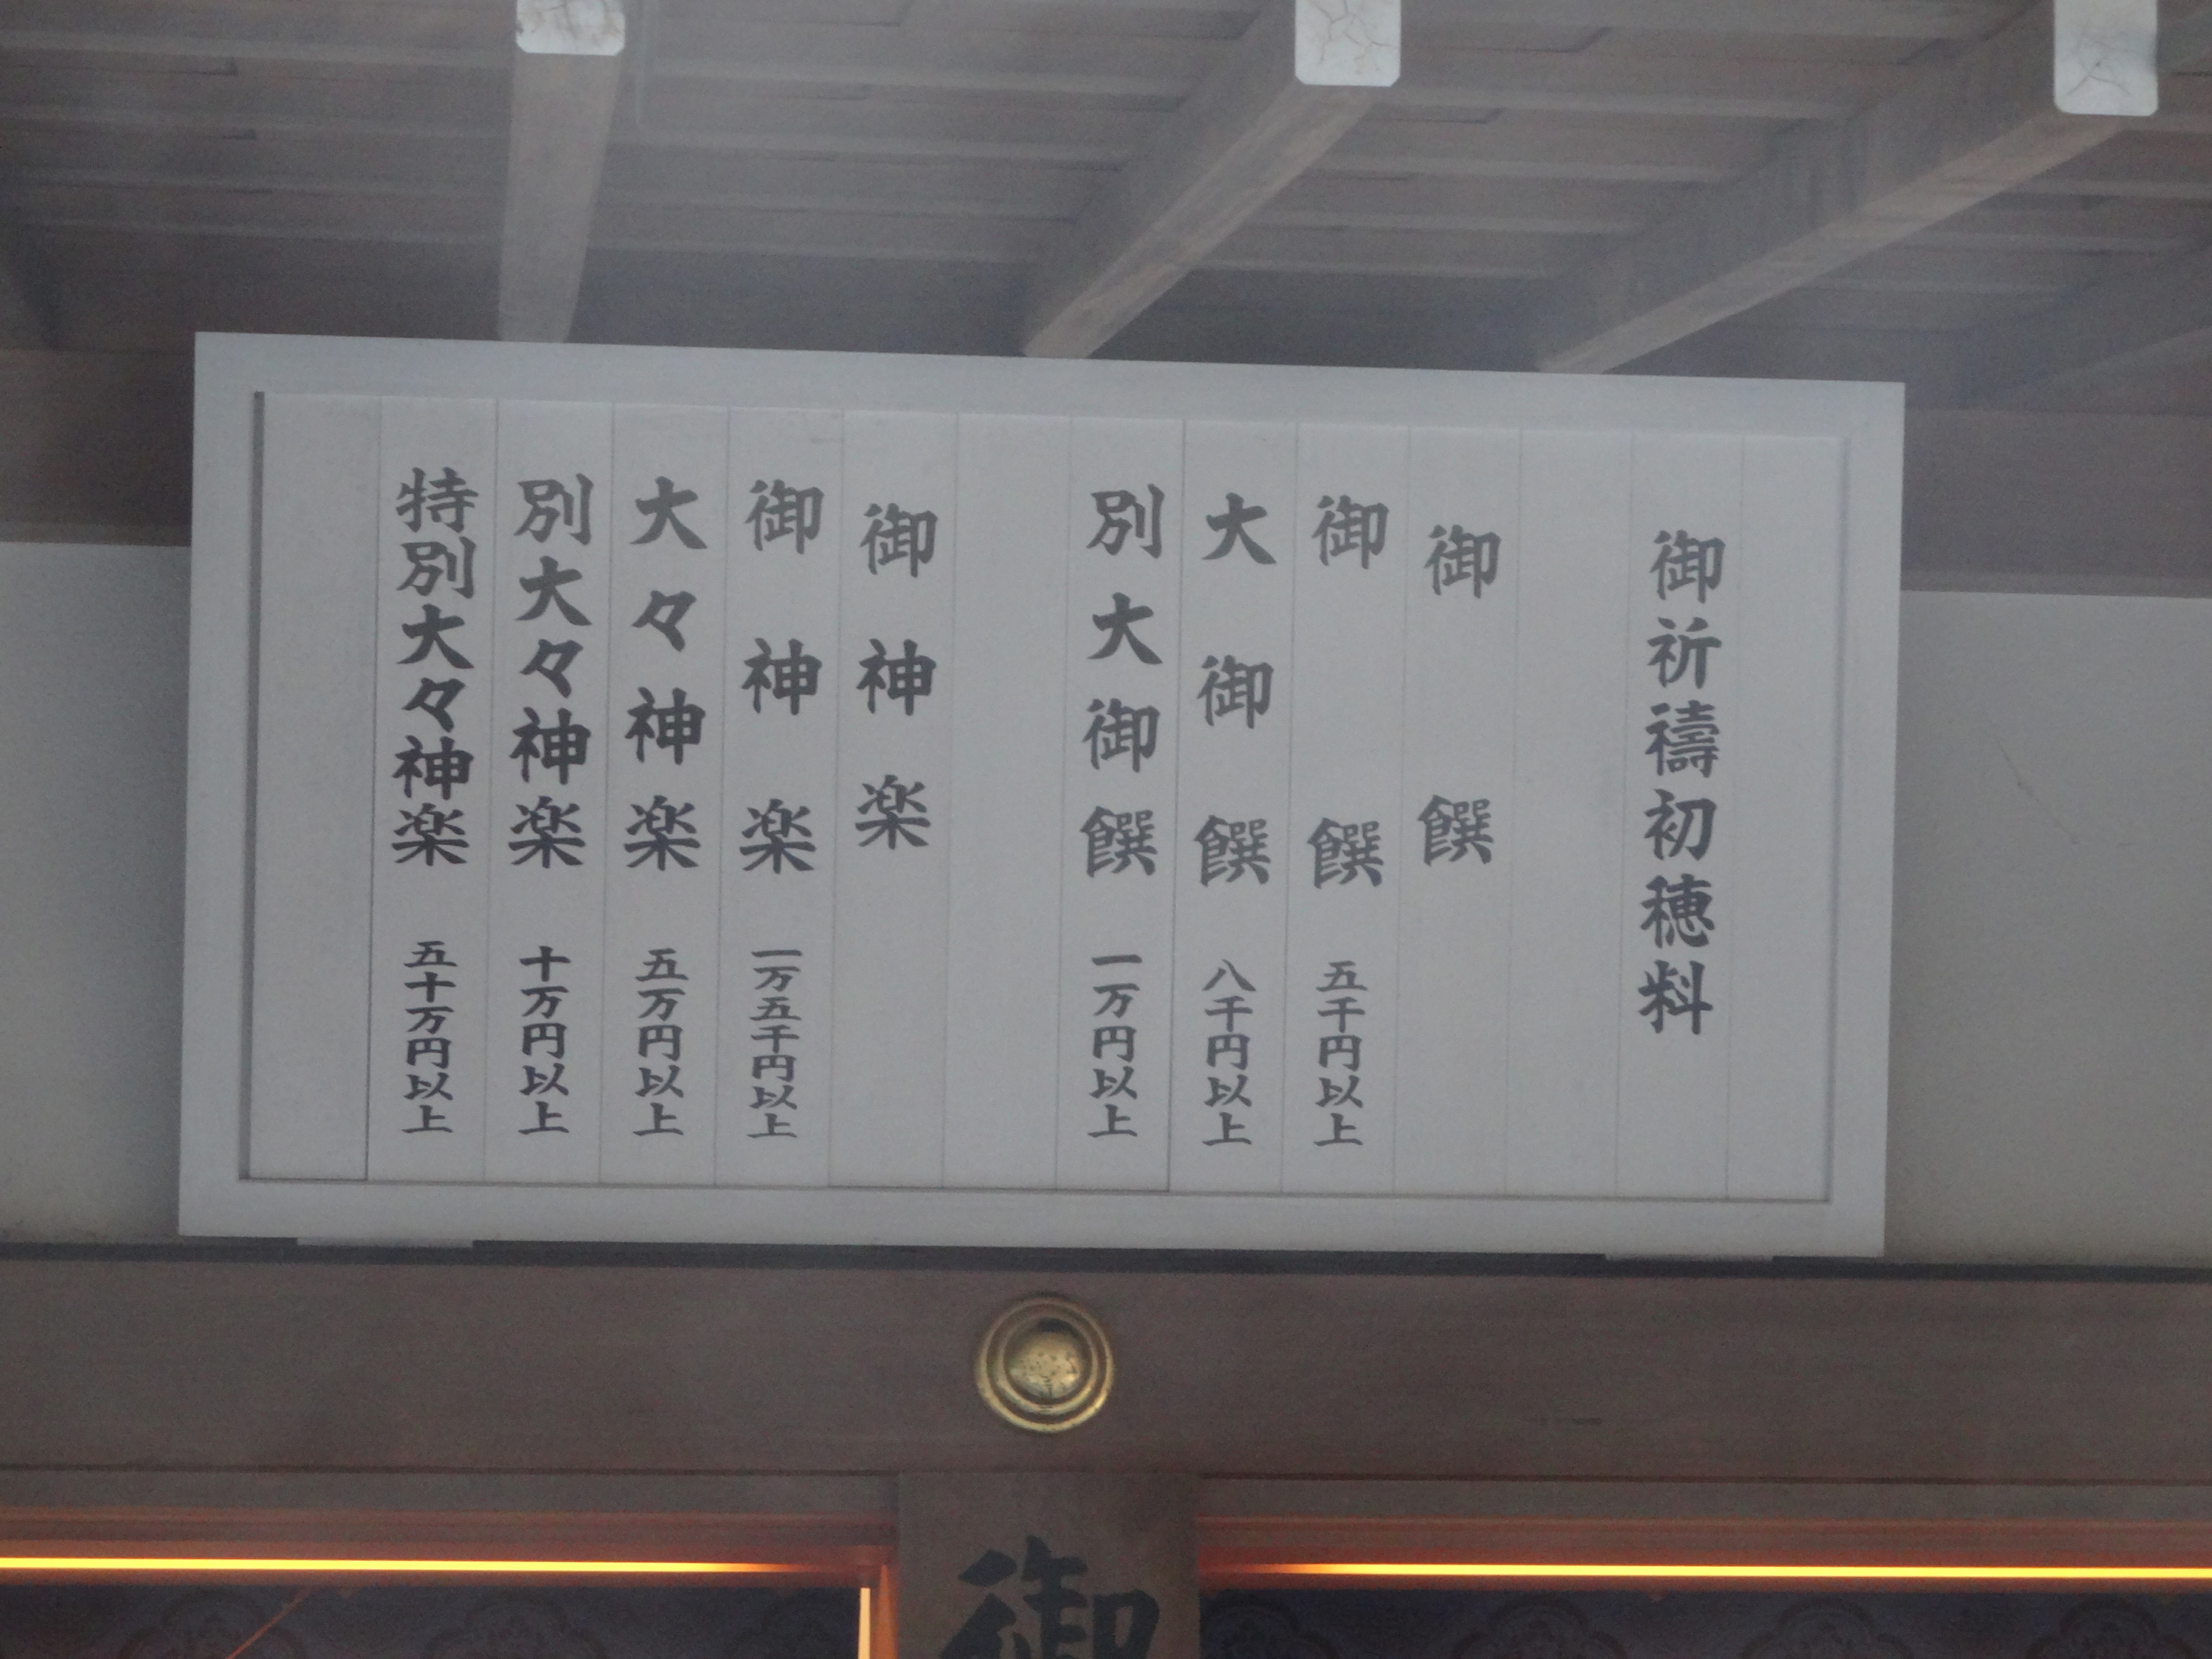 御祈禱初穂料
御饌
御饌 五千円以上
大御饌 八千円以上
別大御饌 一万円以上
御神楽
御神楽 一万五千円以上
大々神楽 五万円以上
別大々神楽 十万円以上
特別大々神楽 五十万円以上
御